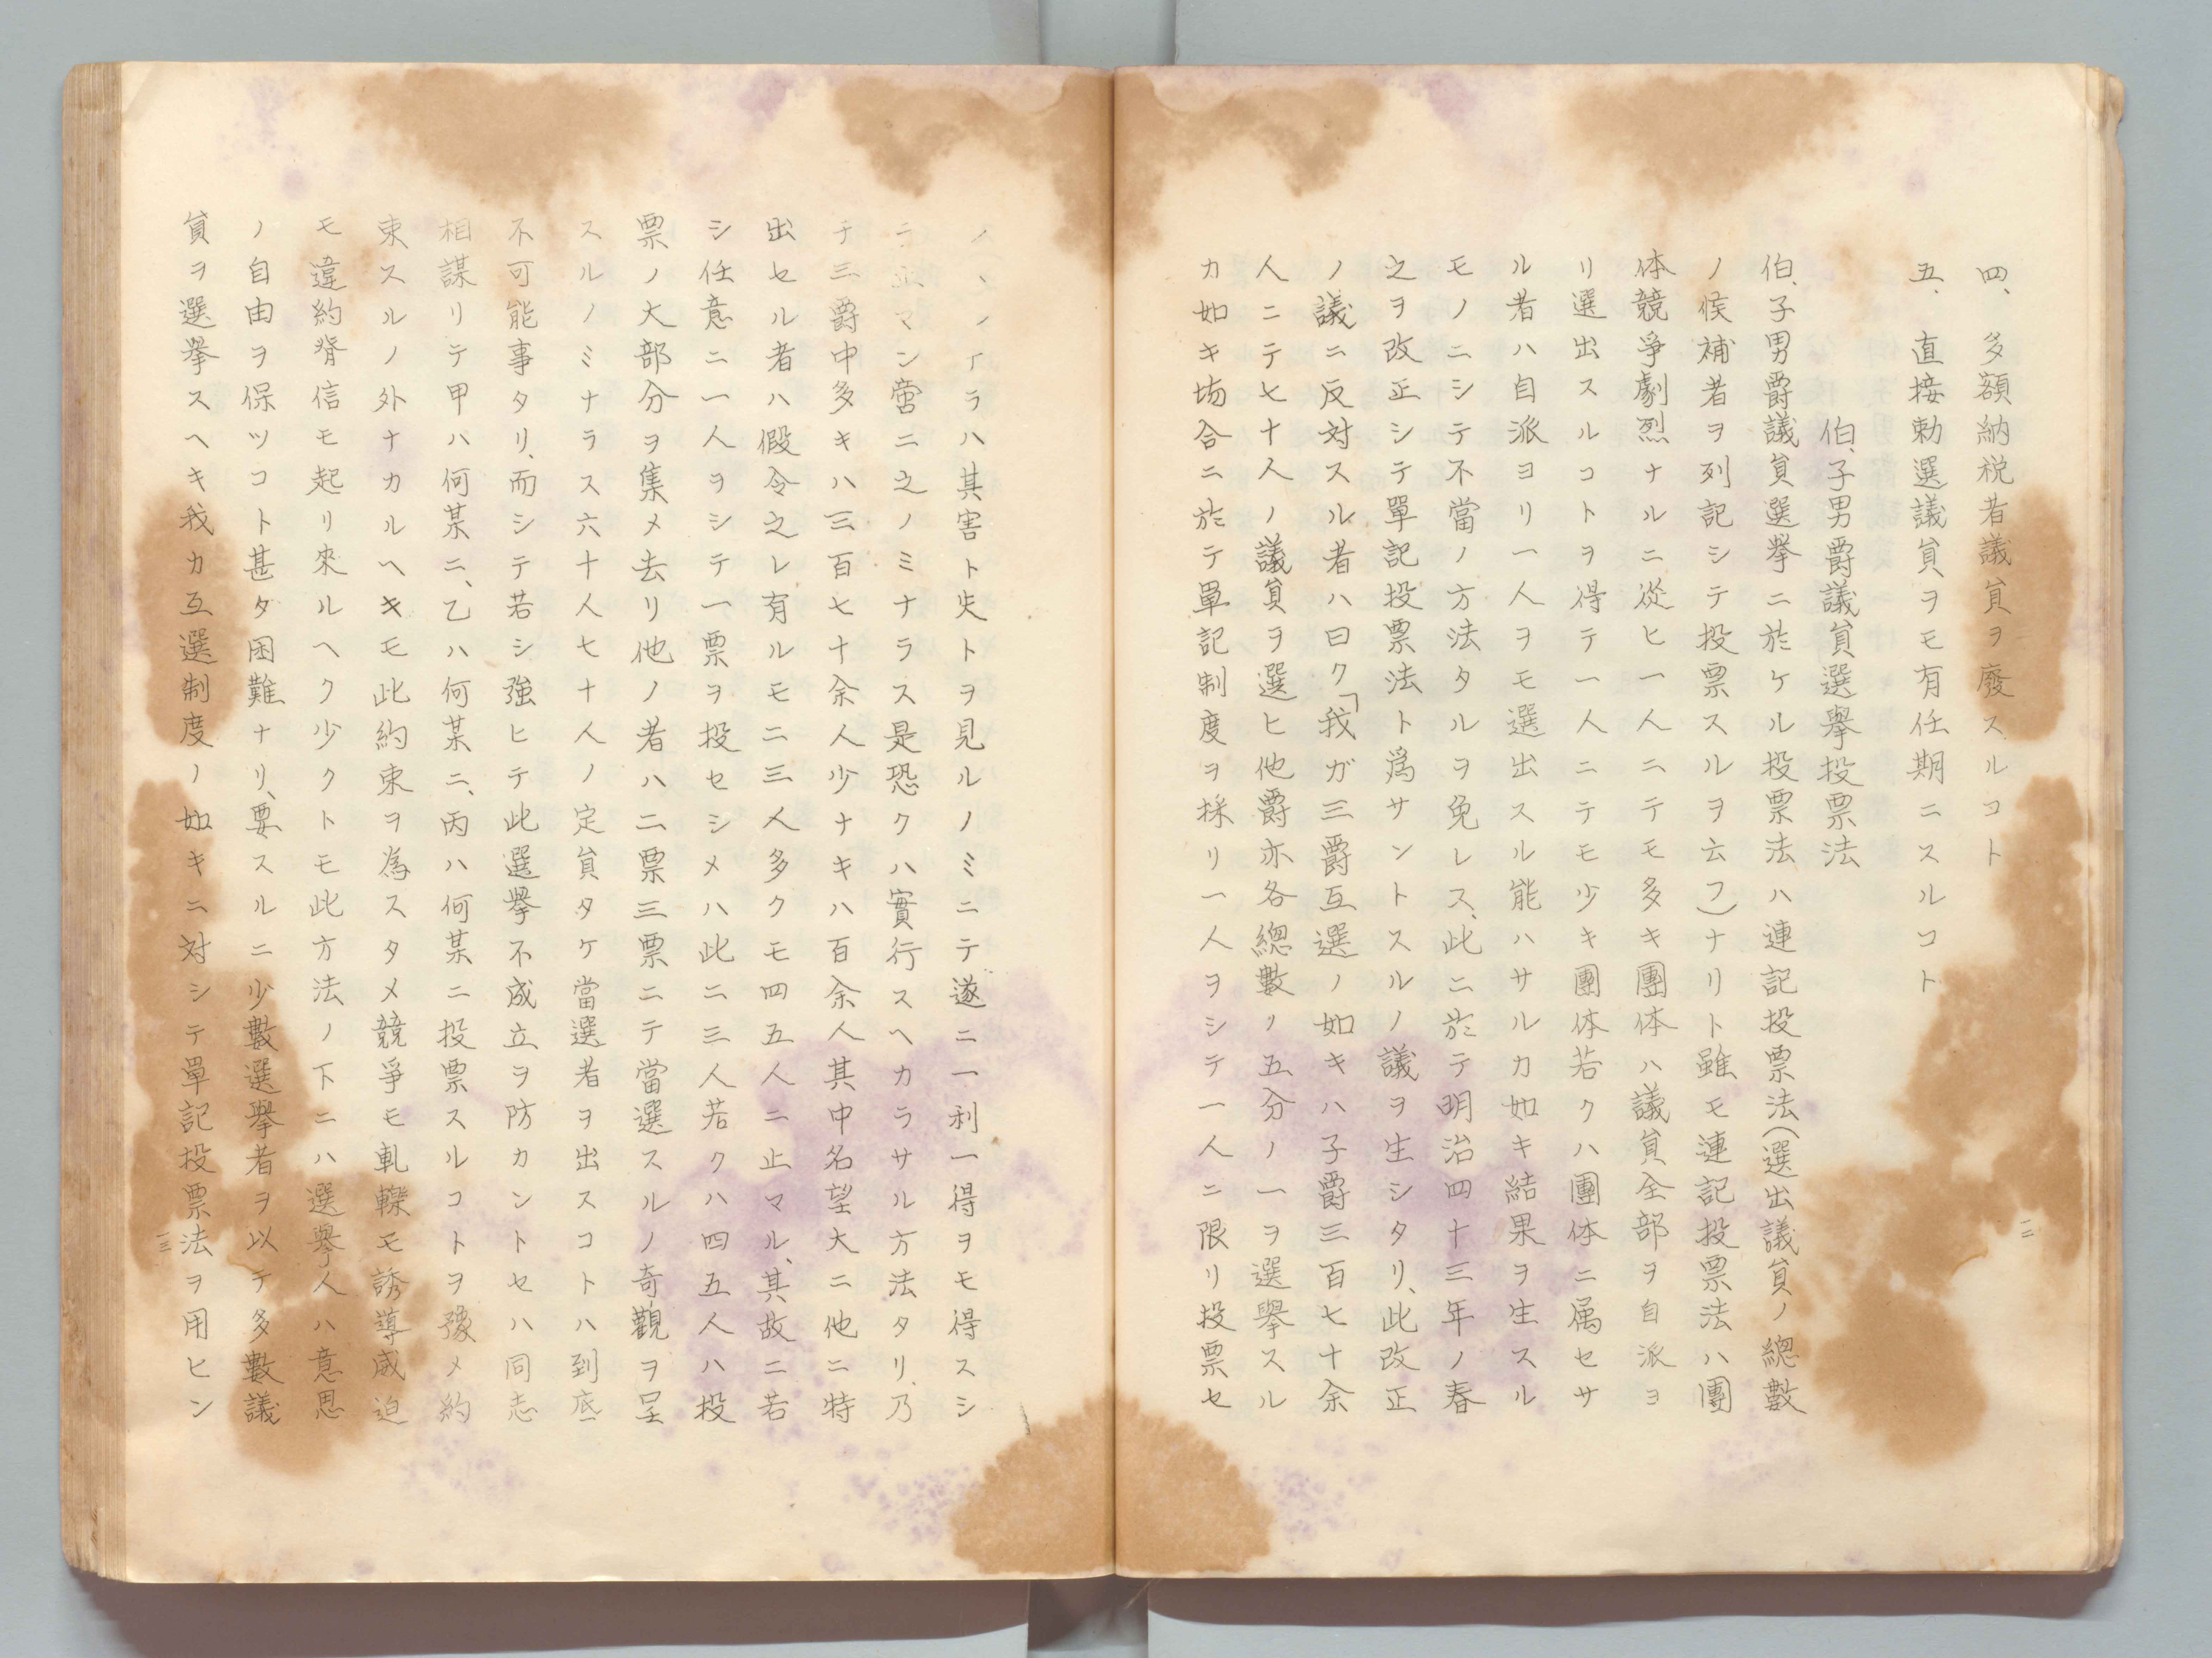 四、多額納税者議員ヲ廢スルコト
五、直接勅選議員ヲモ有任期ニスルコト
伯、子男爵議員選擧投票法
伯、子男爵議員選挙ニ於ケル投票法ハ連記投票法(選出議員ノ總數
ノ候補者ヲ列記シテ投票スルヲ云フ)ナリト雖モ連記投票法ハ團
体競爭劇烈ナルニ從ヒ一人ニテモ多キ團体ハ議員全部ヲ自派ヨ
リ選出スルコトヲ得テ一人ニテモ少キ團体若クハ團体ニ属セサ
ル者ハ自派ヨリ一人ヲモ選出スル能ハサルカ如キ結果ヲ生スル
モノニシテ不當ノ方法タルヲ免レス、此ニ於テ明治四十三年ノ春
之ヲ改正シテ單記投票法ト爲サントスルノ議ヲ生シタリ、此改正
ノ議ニ反対スル者ハ曰ク「我ガ三爵互選ノ如キハ子爵三百七十余
人ニテ七十人ノ議員ヲ選ヒ他爵亦各總數ノ五分ノ一ヲ選擧スル
カ如キ場合ニ於テ單記制度ヲ採リ一人ヲシテ一人ニ限リ投票セ
一二
ハ其害ト失トヲ見ルノミニテ遂ニ一利一得ヲモ得スシ
マン啻ニ之ノミナラス是恐クハ實行スヘカラサル方法タリ、乃
チ三爵中多キハ三百七十余人少ナキハ百余人其中名望大ニ他ニ特
出セル者ハ假令之レ有ルモ二三人多クモ四五人ニ止マル、其故ニ若
シ任意ニ一人ヲシテ一票ヲ投セシメハ此二三人若クハ四五人ハ投
票ノ大部分ヲ集メ去リ他ノ者ハ二票三票ニテ當選スルノ奇觀ヲ呈
スルノミナラス六十人七十人ノ定員タケ當選者ヲ出スコトハ到底
不可能事タリ、而シテ若シ強ヒテ此選擧不成立ヲ防カントセハ同志
相謀リテ甲ハ何某ニ、乙ハ何某ニ、丙ハ何某ニ投票スルコトヲ豫メ約
束スルノ外ナカルヘキモ此約束ヲ為スタメ競爭モ軋轢モ誘導威迫
モ違約背信モ起リ來ルヘク少クトモ此方法ノ下ニハ選擧人ハ意思
ノ自由ヲ保ツコト甚タ困難ナリ、要スルニ少數選擧者ヲ以テ多數議
員ヲ選挙スヘキ我カ互選制度ノ如キニ対シテ單記投票法ヲ用ヒン
一三